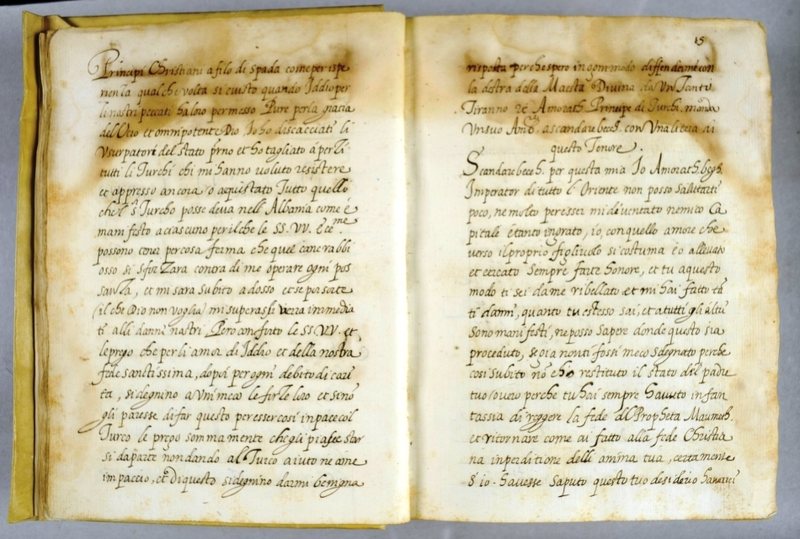 Principi Christiani a filo di spada come per ispe
rienza qualche volta si e visto quando Iddio per
li nostri peccati halno permesso Pure per la gratia
del et omnipotente Dio Io ho discacciati li
Usurpatori del stato et ho tagliato a pezzi
tutti li Turchi chi mi hanno voluto resistere
et appresso ancora o aquistato Tutto quello
che l Turcho posse deva nell Albania come é
manifesto a ciascuno per il che le SS. VV.
possono tener per cosa ferma che quel cane rabbi
oso si sforzara contra di me operare ogni pos
sanza, et mi sara subito adosso et se passare
(il che Dio non voglia) mi superassi verra immedia
ti alli danni nostri Pero conforto le SS. VV. et
le prego che per li amor di Iddio et della nostra
fede santissima, dopoi per ogni debito di cari
ta, si degnino a Unir meco le forze loro et se no
gli paresse di far questo per esser cosi in pace col
Turco le prego somma mente che gli piaccie star
si da parte non dando al Turco aiuto ne a me
impaccio, et di questo si degnino darmi benigna
15
risposta perche spero in gommodo diffendermi con
la destra della Maesta Divina da Un Tanto
Tiranno Amorath Principe di Turchi, manda
Un suo a scandarbech. con Una litera ai
questo Tenore.
Scandarbech. per questa mia Io Amorath. begh.
Imperator di tutto l Oriente non posso salutarti
poco, ne molto per essermi diventato nemico Ca
pitale é tanto ingrato, io, con quello amore che
verso il proprio figliuolo si costuma é o allevato
et cercato sempre farte honore, et tu a questo
modo ti sei da me ribellato et mi hai fatto tā
ti danni, quanto tu estesso sai, et a tutti gli altri
sono manifesti, ne posso sapere donde questo sia
proceduto, se gia non ti fossi meco sdegnato perche
cosi subito nō é ho restituto il stato del padre
tuo/overo perche tu hai sempre havuto in fan
tassia di reggere la fede del Propheta Maumeth.
et ritornare come ai fatto alla fede Christia
na in perditione dell anima tua, certamente
S io havesse saputo questo tuo desiderio